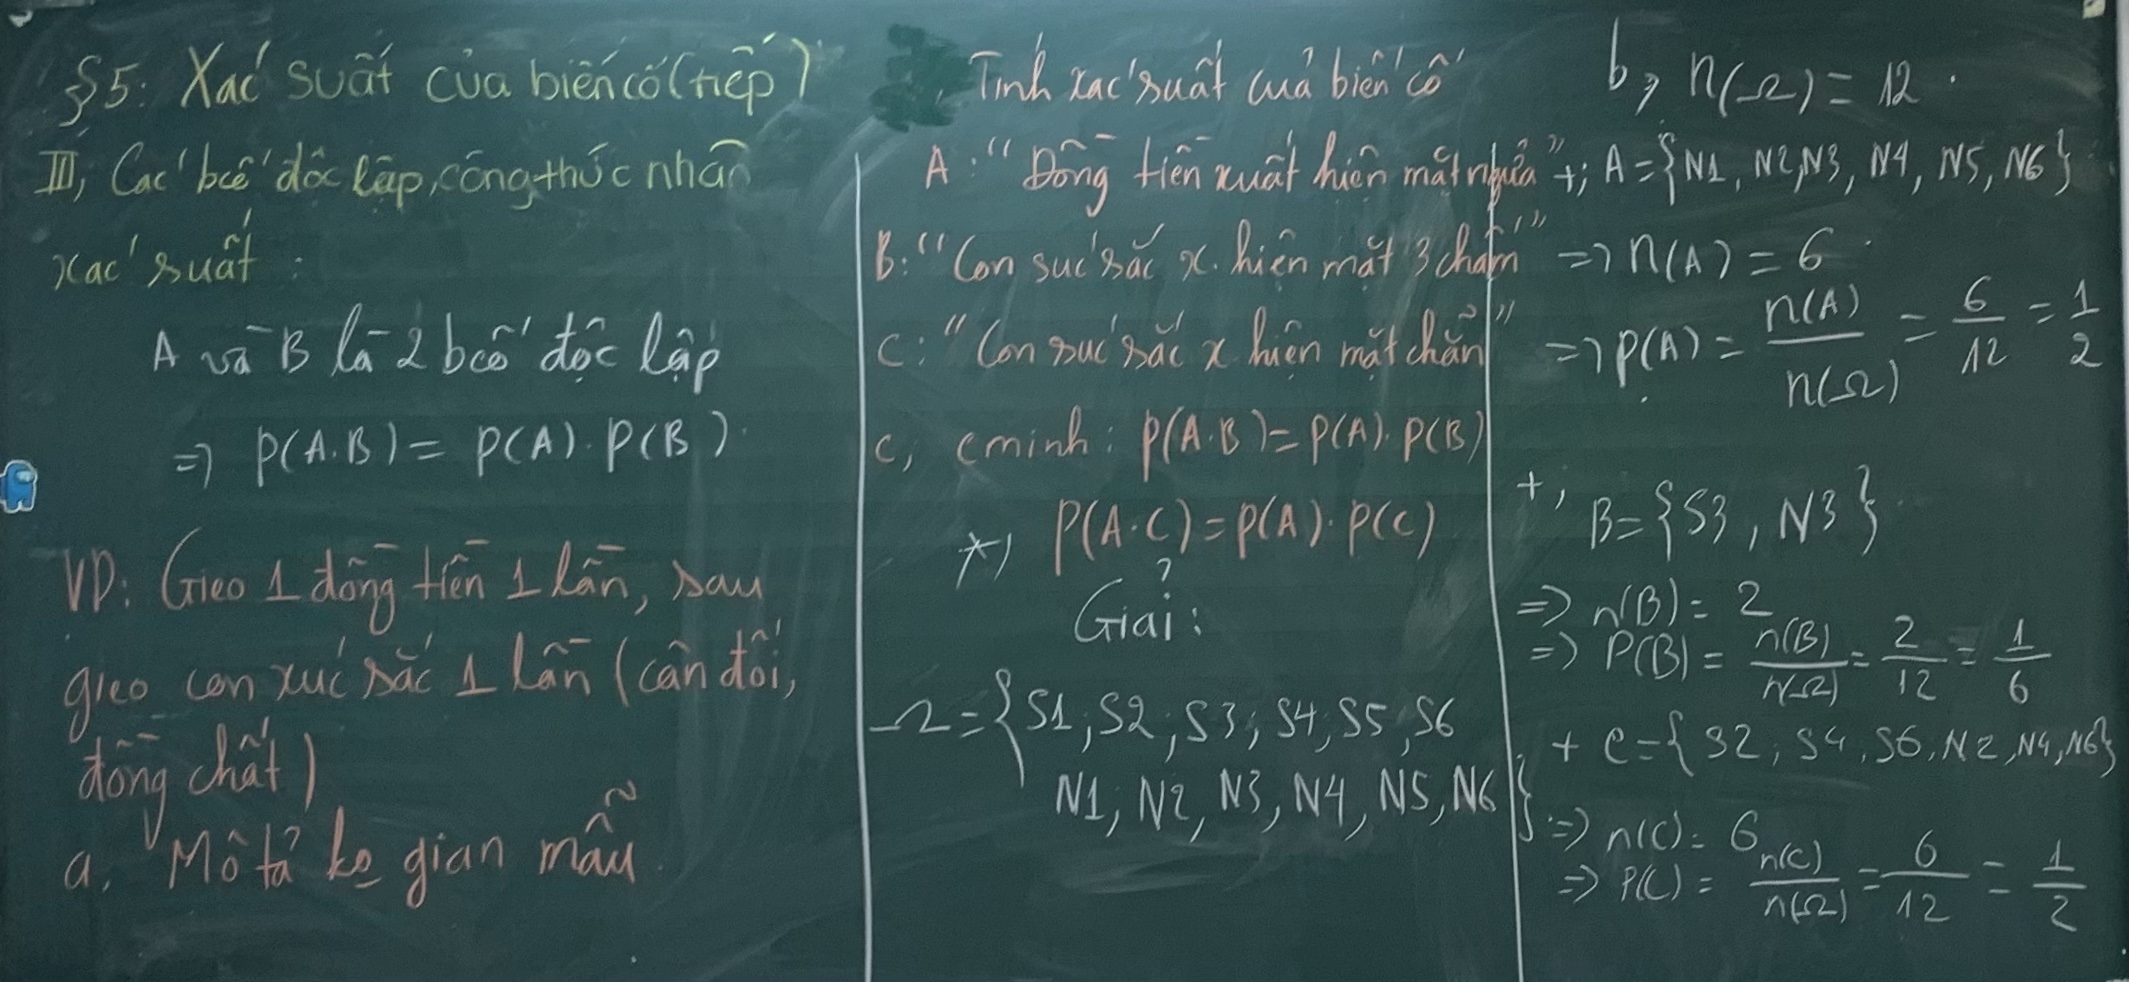 §5: Xác suất của biến cố (tiếp)
III, Các bcố độc lập, công thức nhân
xác suất :
A và B là 2 bcố độc lập
=> P(A.B) = P(A). P(B).
VD: Gieo 1 đồng tiền 1 lần, sau
gieo con xúc sắc 1 lần (cân đối,
đồng chất)
a, Mô tả ko gian mẫu.
Tính xác suất của biến cố
A: "Đồng tiền xuất hiện mặt ngửa"
B: "Con súc sắc x. hiện mặt 3 chấm"
C: "Con súc sắc x hiện mặt chẵn"
c, cminh: P(A.B) = P(A). P(B)
*, P(A.C) = P(A). P(C)
Giải:
Ω = {S1, S2, S3, S4, S5, S6
N1, N2, N3, N4, N5, N6}
b, n(Ω) = 12.
+, A = {N1, N2, N3, N4, N5, N6}
=> n(A) = 6.
=> P(A) = n(A)/n(Ω) = 6/12 = 1/2
+, B = {S3, N3}
=> n(B) = 2
=> P(B) = n(B)/n(Ω) = 2/12 = 1/6
+ C = {S2, S4, S6, N2, N4, N6}
=> n(C) = 6
=> P(C) = n(C)/n(Ω) = 6/12 = 1/2